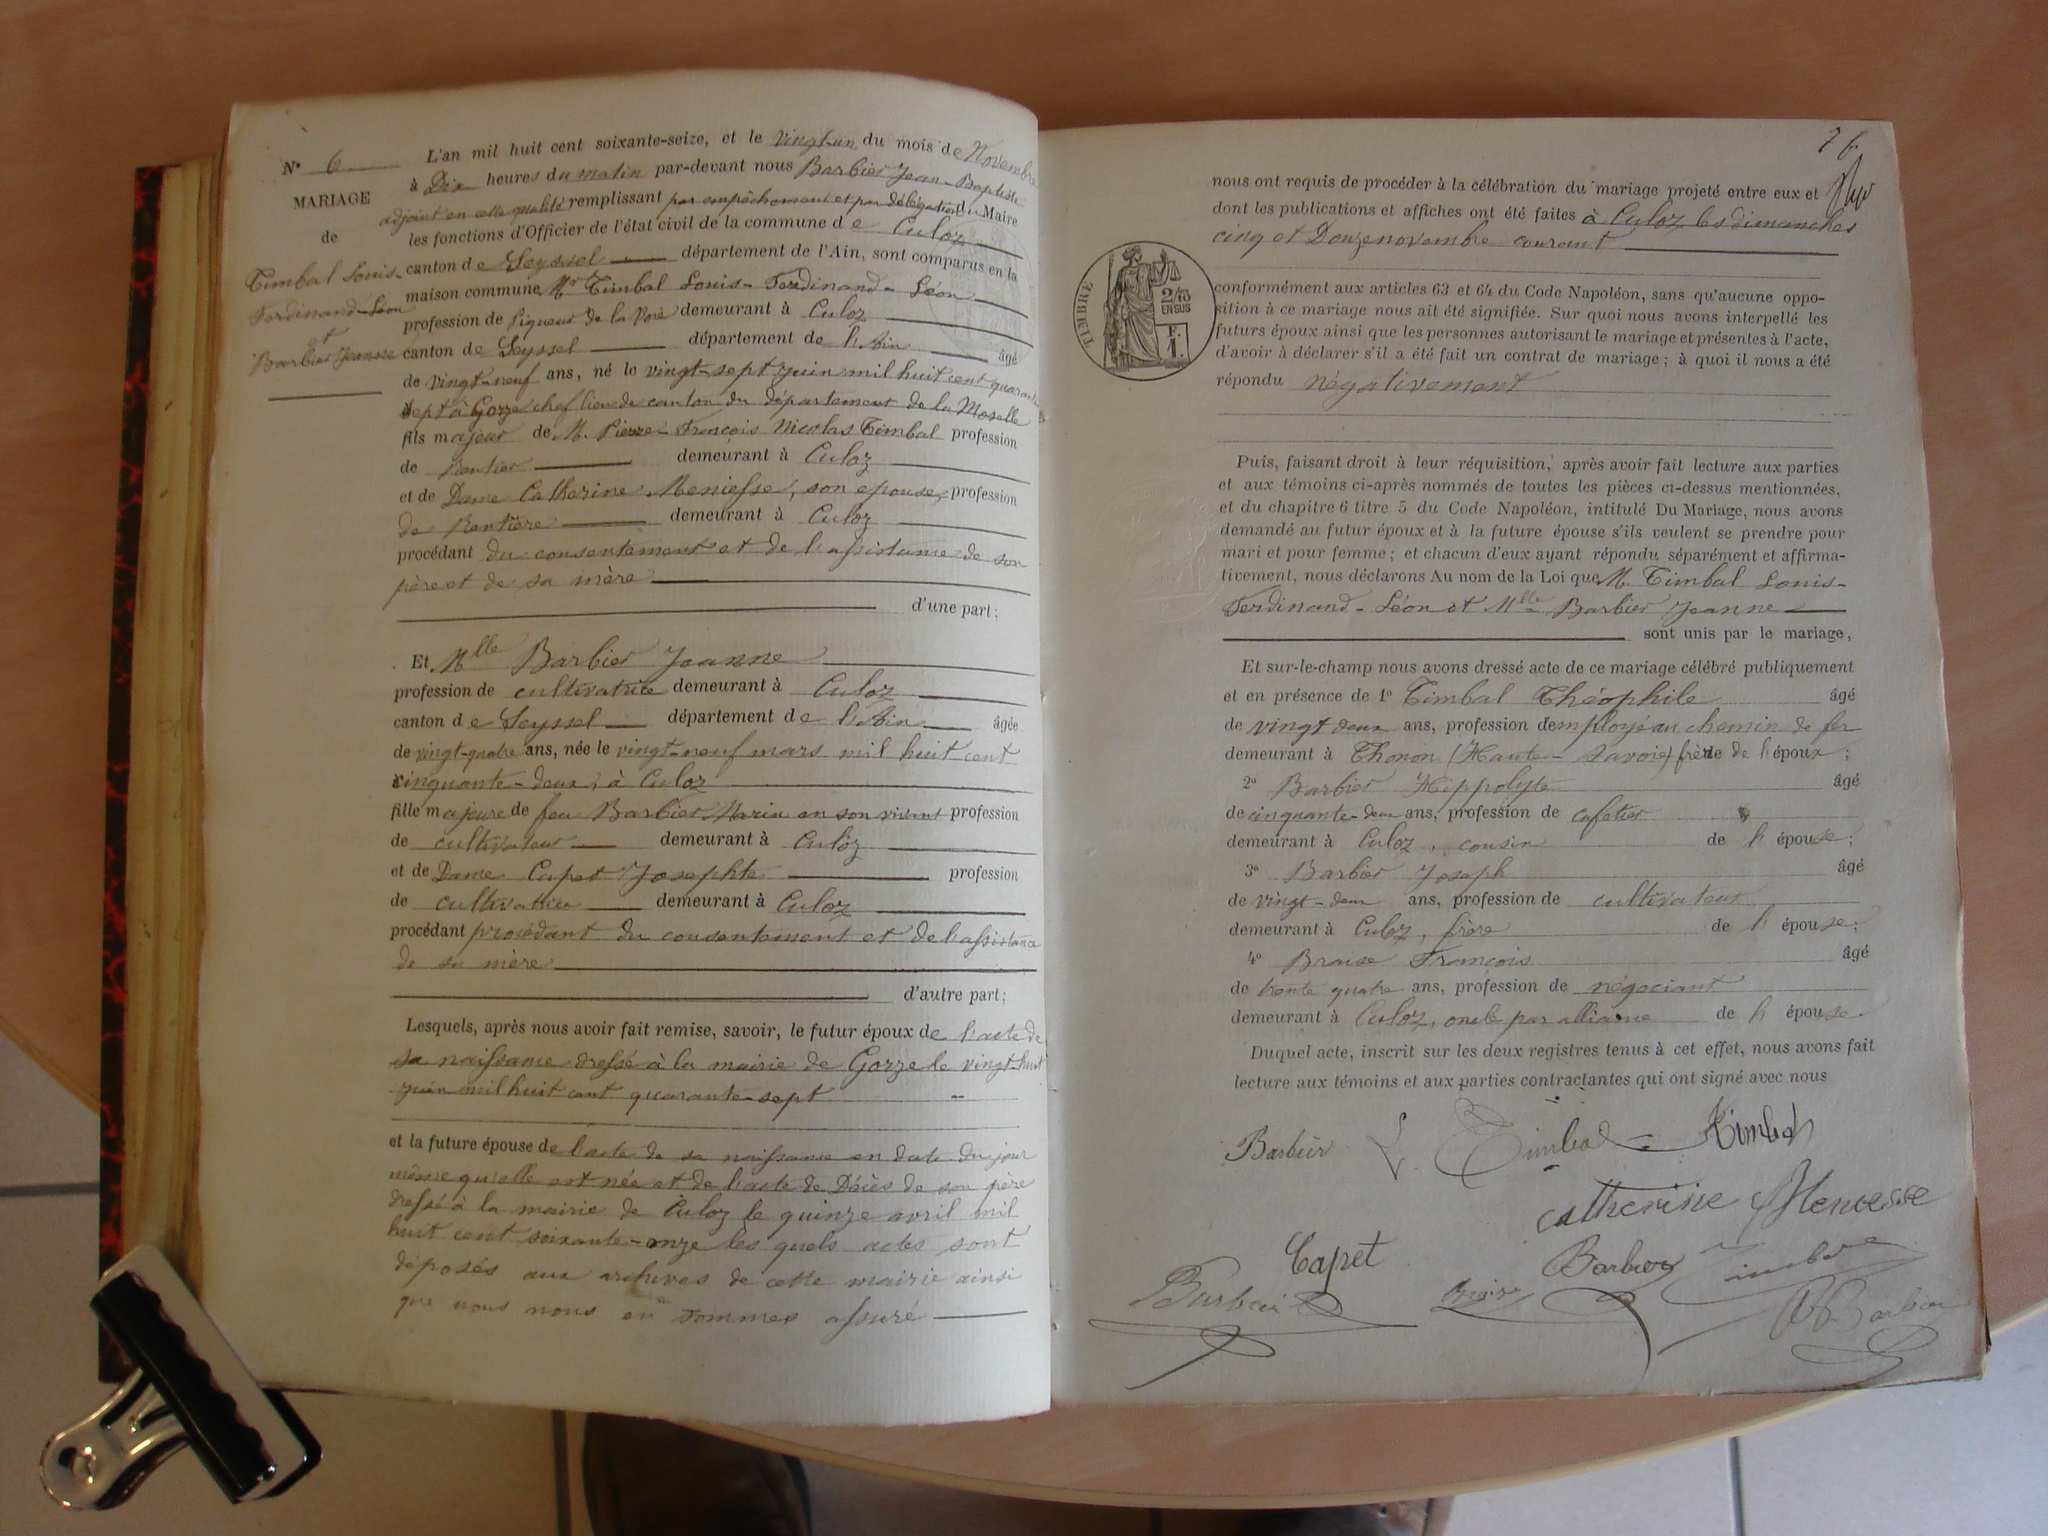 N° 6
MARIAGE
de
Timbal Louis-
Ferdinand-Léon
et
Barbier Jeanne
L'an mil huit cent soixante-seize, et le vingt-un du mois de Novembre
à Dix heures du matin par-devant nous Barbier Jean-Baptiste
adjoint en cette qualité remplissant par empêchement et par délégation du Maire
les fonctions d'Officier de l'état civil de la commune de Culoz
canton de Seyssel département de l'Ain, sont comparus en la
maison commune Mr Timbal Louis-Ferdinand-Léon
profession de Piqueur de la Voie demeurant à Culoz
canton de Seyssel département de l'Ain âgé
de vingt-neuf ans, né le vingt-sept juin mil huit cent quarante
sept à Gorze chef lieu de canton du département de la Moselle
fils majeur de M. Pierre-François Nicolas Timbal profession
de Rentier demeurant à Culoz
et de Dame Catherine Meniesse, son epouse, profession
de Rentière demeurant à Culoz
procédant du consentement et de l'assistance de son
père et de sa mère
d'une part;
Et Mlle Barbier Jeanne
profession de cultivatrice demeurant à Culoz
canton de Seyssel département de l'Ain âgée
de vingt-quatre ans, née le vingt-neuf mars mil huit cent
cinquante-deux, à Culoz
fille majeure de feu Barbier Marin en son vivant profession
de cultivateur demeurant à Culoz
et de Dame Capet Josephte profession
de cultivatrice demeurant à Culoz
procédant procédant du consentement et de l'assistance
de sa mère
d'autre part;
Lesquels, après nous avoir fait remise, savoir, le futur époux de l'acte de
sa naissance dressé à la mairie de Gorze le vingt-huit
juin mil huit cent quarante-sept
et la future épouse de l'acte de sa naissance en date du jour
même qu'elle est née et de l'acte de Décès de son père
dressé à la mairie de Culoz le quinze avril mil
huit cent soixante-onze les quels actes sont
déposés aux archives de cette mairie ainsi
que nous nous en sommes assuré
76
nous ont requis de procéder à la célébration du mariage projeté entre eux et
dont les publications et affiches ont été faites à Culoz les dimanches
cinq et Douze novembre courant
TIMBRE
2/10
EN SUS
F.
1.
conformément aux articles 63 et 64 du Code Napoléon, sans qu'aucune oppo-
sition à ce mariage nous ait été signifiée. Sur quoi nous avons interpellé les
futurs époux ainsi que les personnes autorisant le mariage et présentes à l'acte,
d'avoir à déclarer s'il a été fait un contrat de mariage; à quoi il nous a été
répondu négativement
Puis, faisant droit à leur réquisition, après avoir fait lecture aux parties
et aux témoins ci-après nommés de toutes les pièces ci-dessus mentionnées,
et du chapitre 6 titre 5 du Code Napoléon, intitulé Du Mariage, nous avons
demandé au futur époux et à la future épouse s'ils veulent se prendre pour
mari et pour femme; et chacun d'eux ayant répondu séparément et affirma-
tivement, nous déclarons Au nom de la Loi que M. Timbal Louis-
Ferdinand-Léon et Mlle Barbier Jeanne
sont unis par le mariage,
Et sur-le-champ nous avons dressé acte de ce mariage célébré publiquement
et en présence de 1° Timbal Théophile âgé
de vingt deux ans, profession d'employé au chemin de fer
demeurant à Thonon (Haute-Savoie) frère de l'époux;
2° Barbier Hippolyte âgé
de cinquante-deux ans, profession de cafetier
demeurant à Culoz, cousin de l'épouse;
3° Barbier Joseph âgé
de vingt-deux ans, profession de cultivateur
demeurant à Culoz, frère de l'épouse;
4° Braise François âgé
de trente quatre ans, profession de négociant
demeurant à Culoz, oncle par alliance de l'épouse.
Duquel acte, inscrit sur les deux registres tenus à cet effet, nous avons fait
lecture aux témoins et aux parties contractantes qui ont signé avec nous
Barbier L. Timbal Timbal
Catherine Menesse
Capet Barbier Timbal
Barbier Braise Barbier